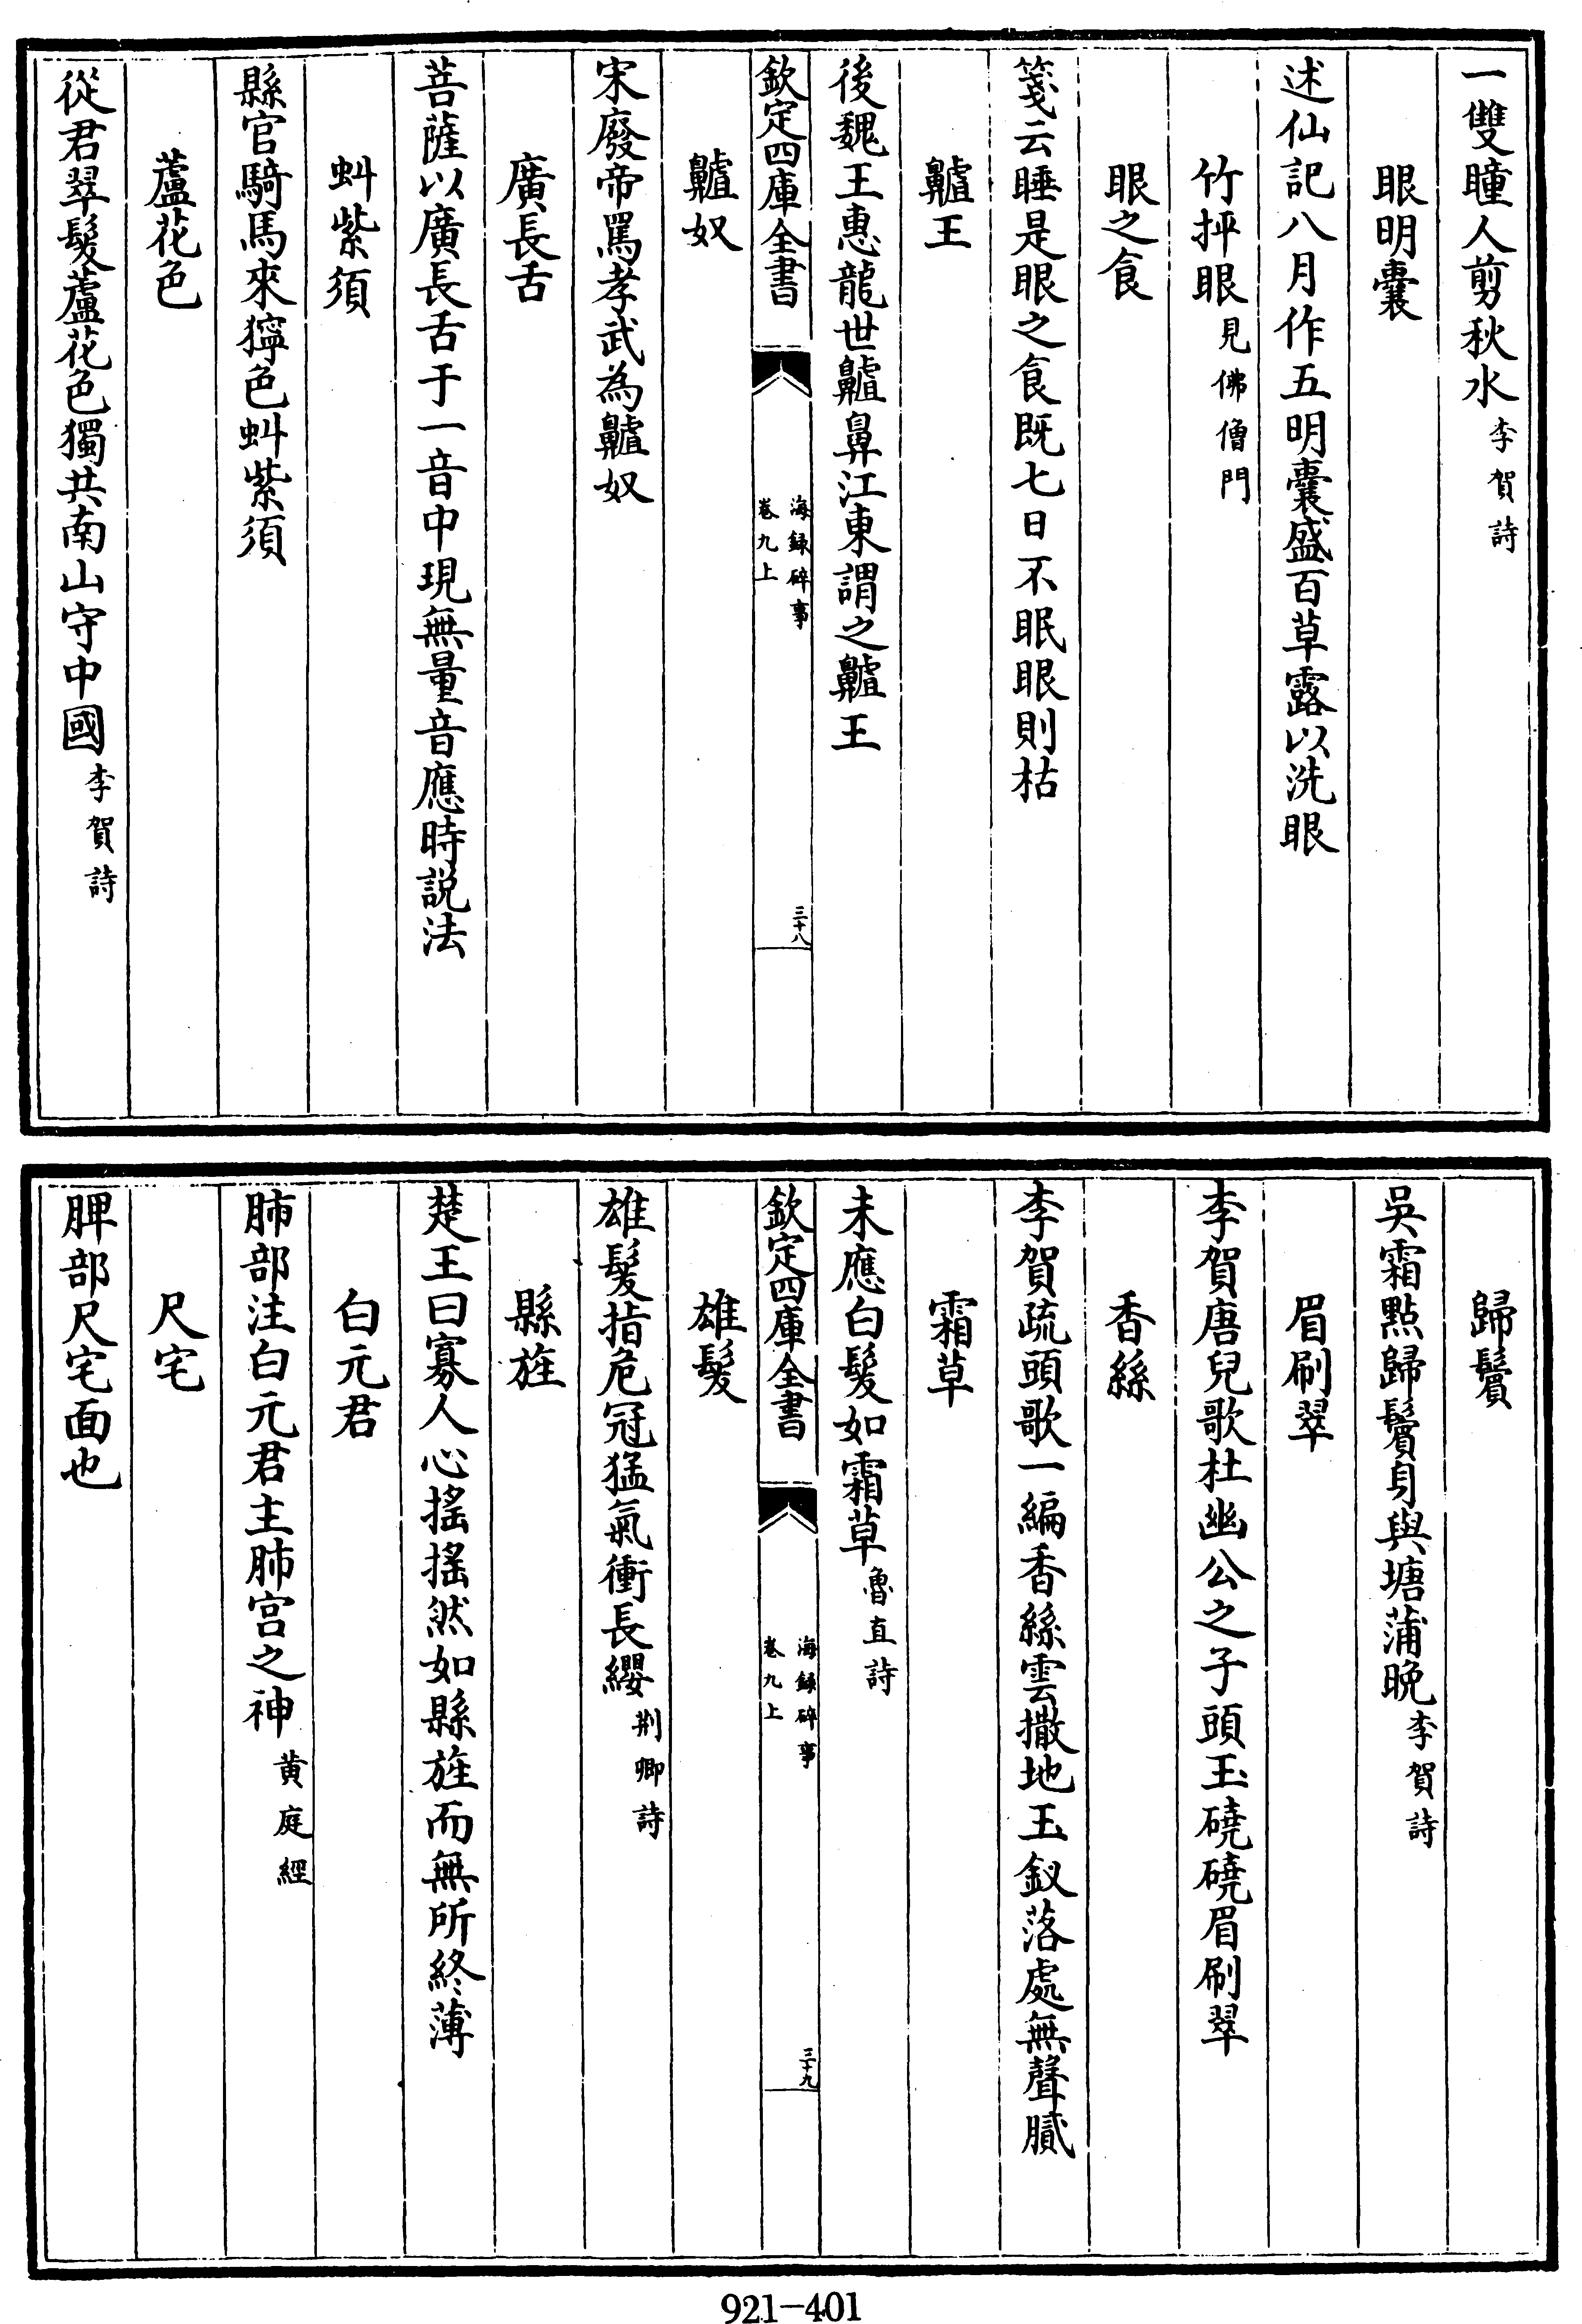 一雙瞳人剪秋水李賀詩
眼明囊
述仙記八月作五明囊盛百草露以洗眼
竹抨眼見佛僧門
眼之食
箋云睡是眼之食既七日不眠眼則枯
齇王
後魏王惠龍世齇鼻江東謂之齇王
欽定四庫全書
海録碎事
卷九上
三十八
齇奴
宋廢帝罵孝武為齇奴
廣長舌
菩薩以廣長舌于一音中現無量音應時説法
虯紫須
縣官騎馬來獰色虯紫須
蘆花色
從君翠髮蘆花色獨共南山守中國李賀詩
歸鬢
吳霜點歸鬢身與塘蒲晚李賀詩
眉刷翠
李賀唐兒歌杜豳公之子頭玉磽磽眉刷翠
香絲
李賀疏頭歌一編香絲雲撒地玉釵落處無聲膩
霜草
未應白髮如霜草魯直詩
欽定四庫全書
海録碎事
卷九上
三十九
雄髮
雄髮指危冠猛氣衝長纓荆卿詩
縣旌
楚王曰寡人心搖搖然如縣旌而無所終薄
白元君
肺部注白元君主肺宫之神黄庭經
尺宅
脾部尺宅面也
921-401